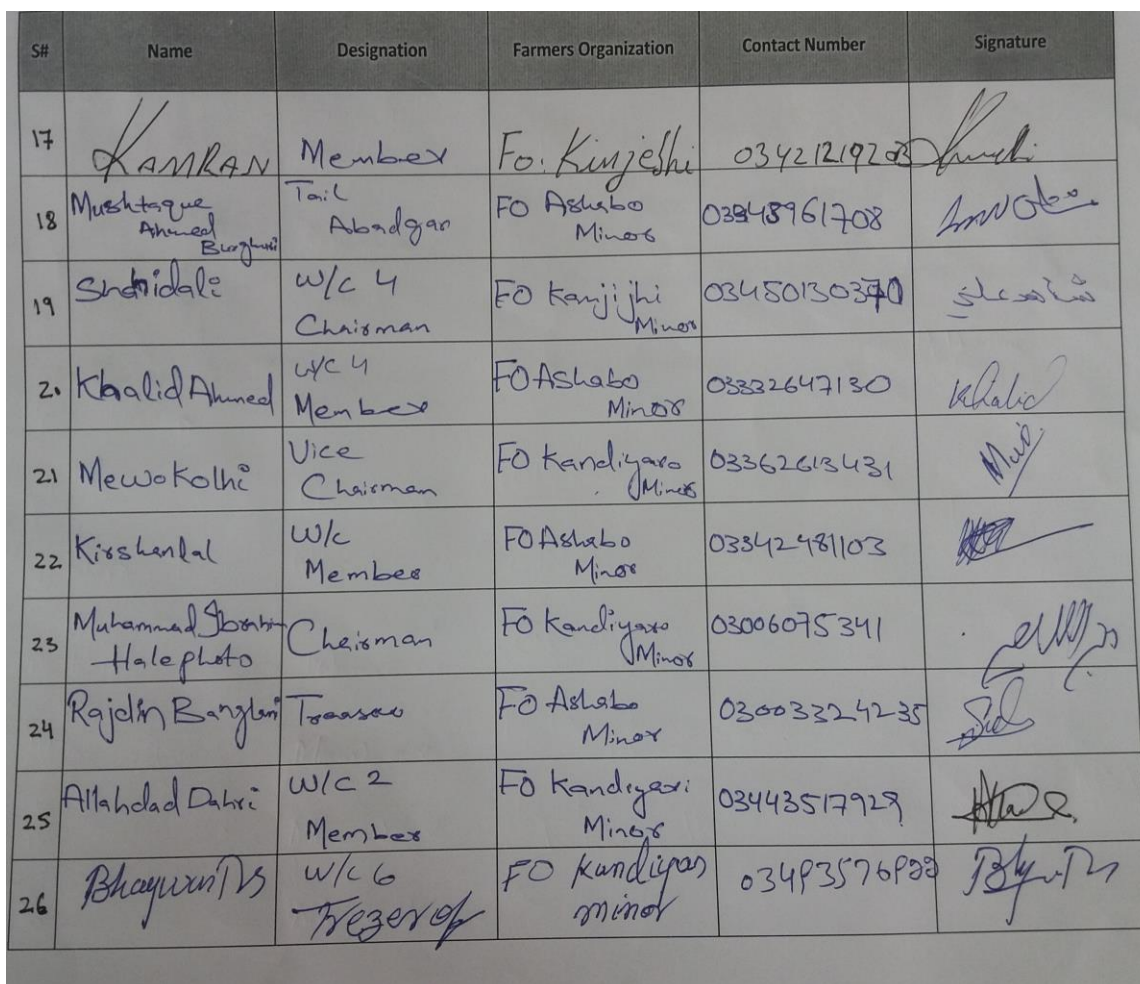 S# Name Designation Farmers Organization Contact Number Signature
17 KAMRAN Member Fo. Kinjejhi 03421219203
18 Mushtaque Ahmed Tail Abadgar FO Ashabo Minor
19 Shahidali W/C 4 Chairman FO Kamjijhi Minor 03450130370 شاهد علي
20 Khalid Ahmed W/C 4 Member FO Ashabo Minor 03332647130 Khalid
21 Mewo Kolhi Vice Chairman FO Kandiyaro Minor 03362613431
22 Kirshanlal W/C Member FO Ashabo Minor 03342481103
23 Muhammad Ibrahim Halephoto Chairman FO Kandiyaro Minor 03006075341
24 Rajdin FO Ashabo Minor 030033324235
25 Allahdad Dahri W/C 2 Member FO Kandiyari Minor 03443517929
26 W/C 6 FO Kandiyar minor